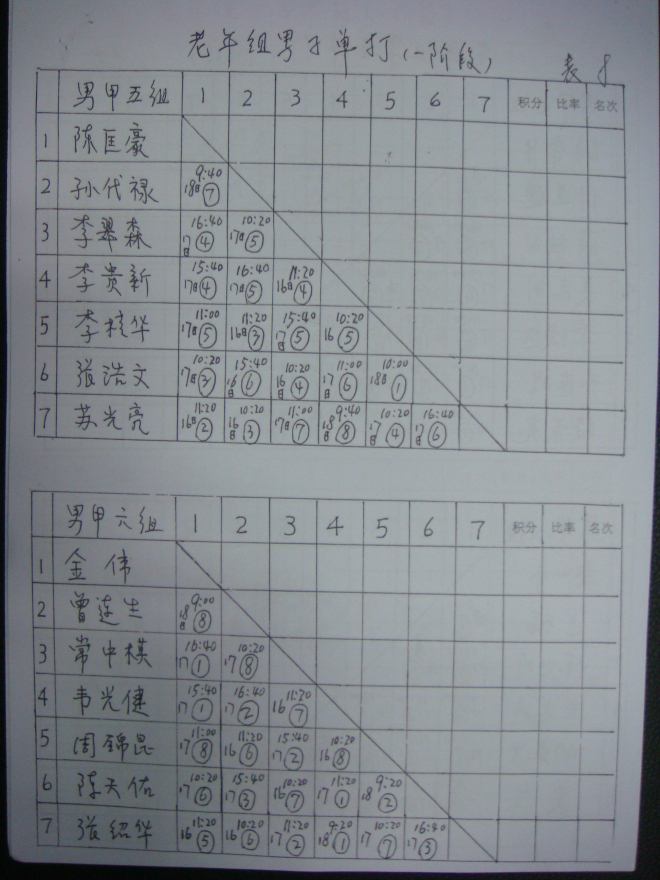 老年组男子单打(一阶段)
表
男甲五组 1 2 3 4 5 6 7 积分 比率 名次
1 陈匡豪
2 孙代禄 9:40 18日⑦
3 李翠森 16:40 17日④ 10:20 17日⑤
4 李贵新 15:40 17日④ 16:40 17日⑤ 11:20 16日④
5 李桂华 11:00 17日⑤ 11:20 16日③ 15:40 17日⑤ 10:20 16⑤
6 张浩文 10:20 17日③ 15:40 16日⑥ 10:20 16日④ 11:00 17日⑥ 10:00 18日①
7 苏光亮 11:20 16日② 10:20 16日③ 11:00 17日⑦ 9:40 18日⑧ 10:20 17日④ 16:40 17日⑥
男甲六组 1 2 3 4 5 6 7 积分 比率 名次
1 金伟
2 曾连生 9:00 18日⑧
3 常中棋 16:40 17① 10:20 17⑧
4 韦光健 15:40 17① 16:40 17② 11:20 16⑦
5 周锦昆 11:00 17⑧ 11:20 16⑥ 15:40 17② 10:20 16⑧
6 陈天佑 10:20 17⑥ 15:40 17③ 10:20 16⑦ 11:20 17① 9:20 18②
7 张绍华 11:20 16⑤ 10:20 16⑥ 11:20 17② 9:20 18① 10:20 17⑦ 16:40 17③